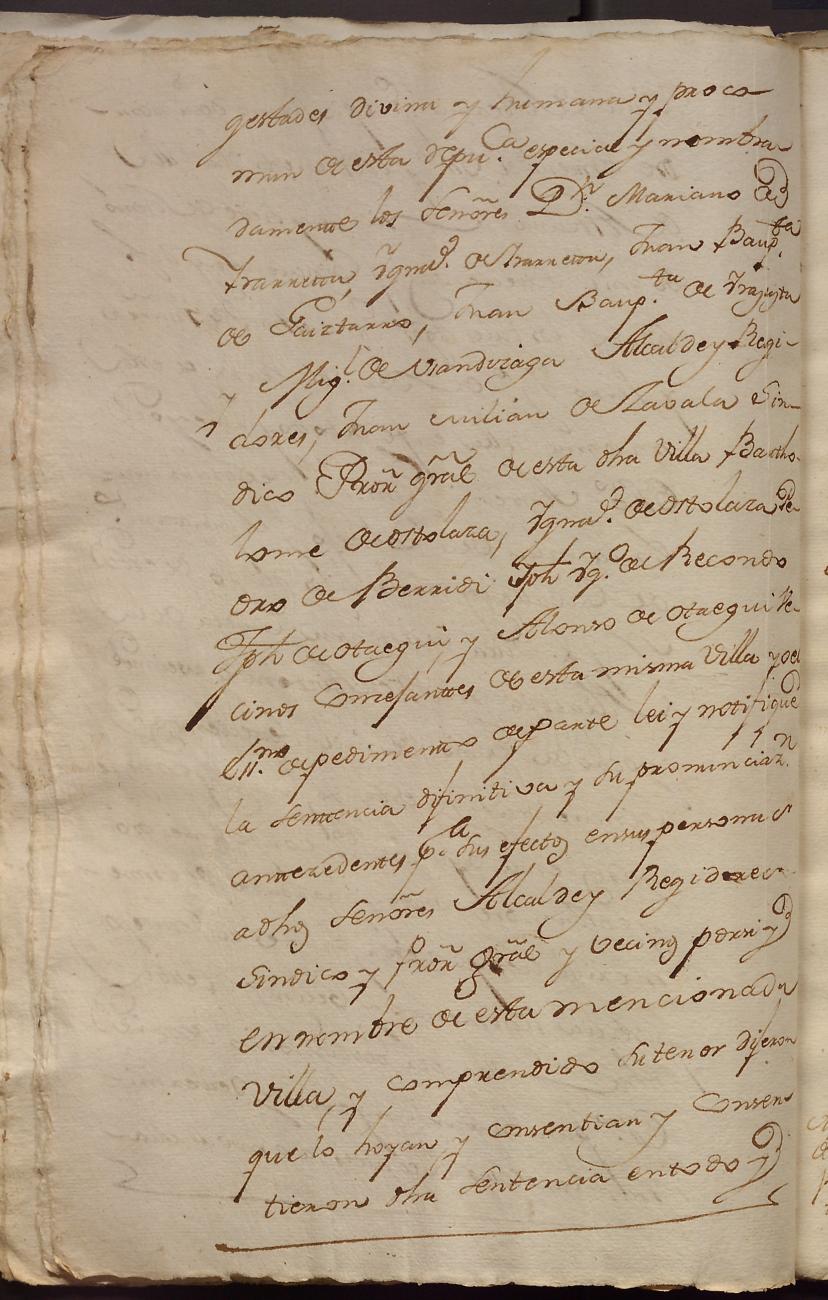 gestades divina y humana y proco
mun de esta repu.ca especial y nombra-
damente los señores Dn. Mariano de
Yrarreta, Ygna.o de Yrarreta, Juan Baup.ta
de Gaiztarro, Juan Baup.ta de
y Mig.l de Alcalde y Regi-
dores, Juan de Zavala Sin-
dico Pror gral de esta dha Villa Bartho-
lome de ostolaza, Ygna.o de ostolaza Pe-
dro de Berridi Jph Yg.o de Recondo
Jph de otaegui, y Alonso de otaegui Ve-
cinos Concejantes de esta misma Villa y yo el
Ess.no de pedimento de parte lei y notifiqué
la sentencia difinitiva y su pronunciaz.n
antezedentes p.a sus efectos en sus personas
a dhos señores Alcalde y Regidores
sindico y Pror gral y vecinos por si y
en nombre de esta mencionada
Villa, y comprendido su tenor dijeron
que lo hoyan y consentian y consen-
tieron dha sentencia en todo y